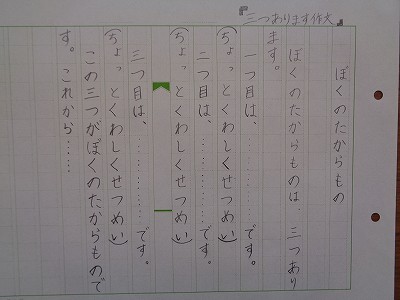 『三つあります作文』
ぼくのたからもの
ぼくのたからものは、三つあり
ます。
一つ目は、…………です。
(ちょっとくわしくせつめい)
二つ目は、…………です。
(ちょっとくわしくせつめい)
三つ目は、…………です。
(ちょっとくわしくせつめい)
この三つがぼくのたからもので
す。これから……